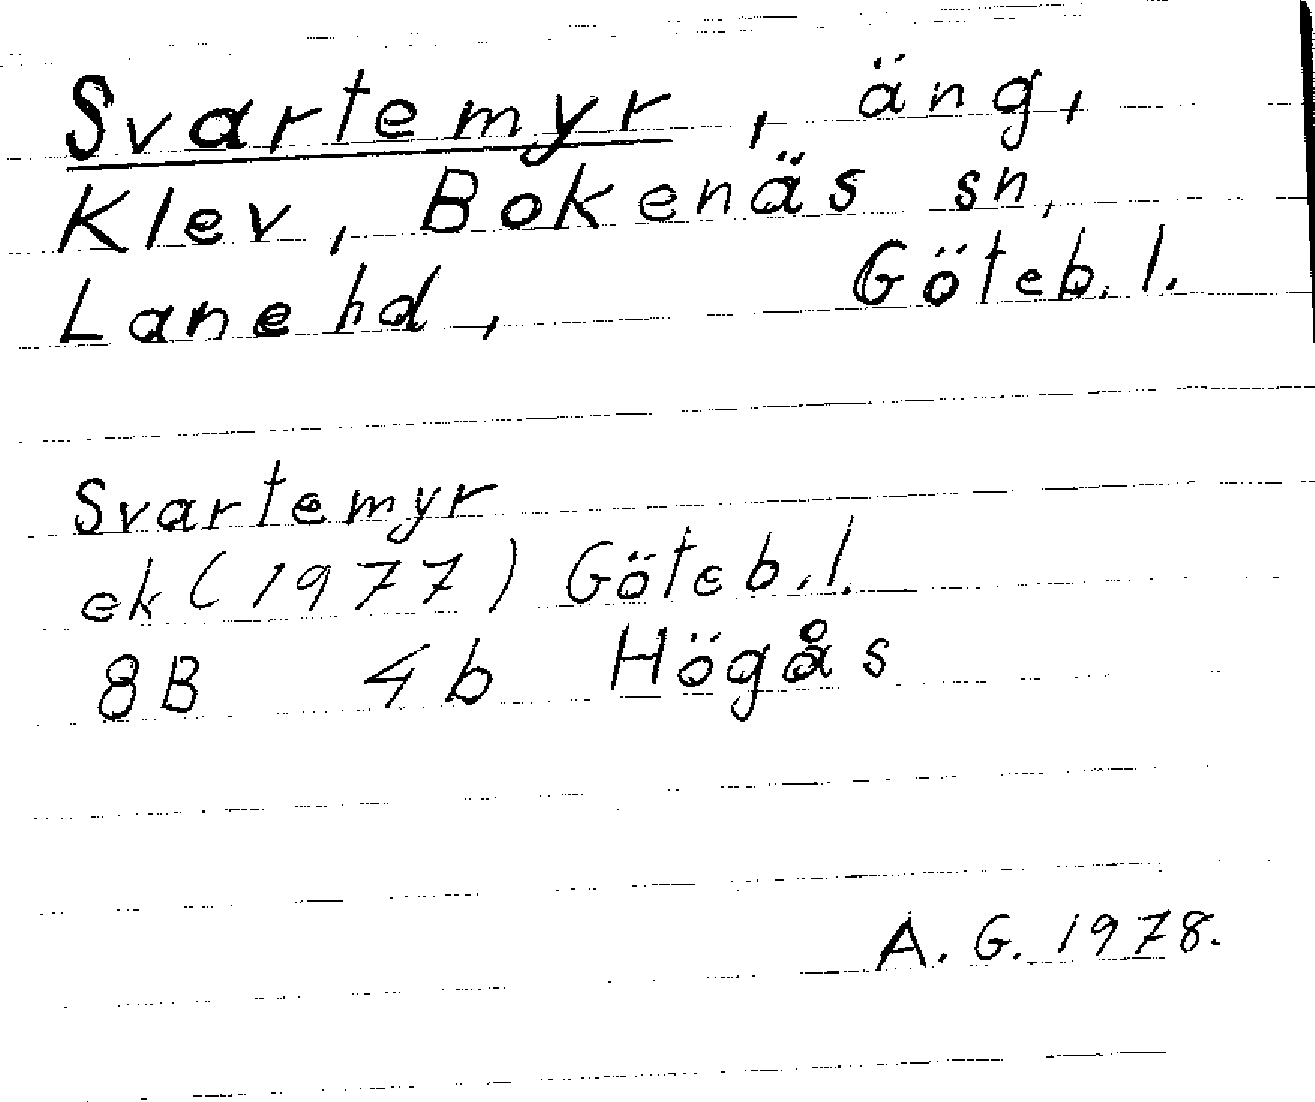 Svartemyr, äng,
Klev, Bokenäs sn,
Lane hd, Göteb. l.
Svartemyr
ek (1977) Göteb. l.
8B 4b Högås
A. G. 1978.